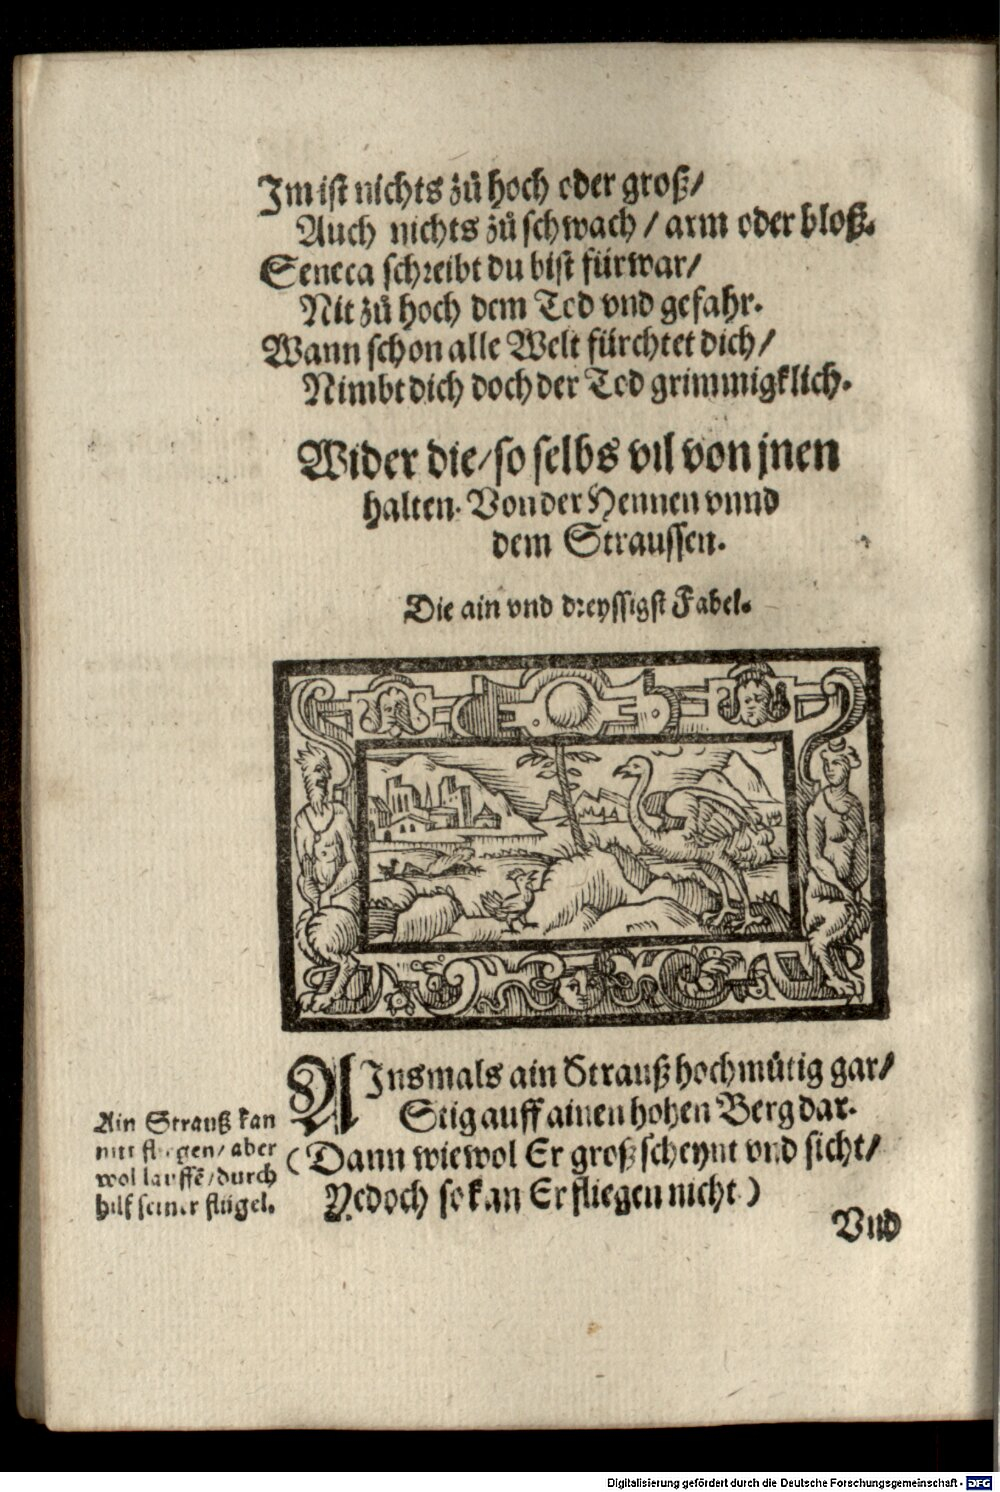 Im ist nichts zů hoch oder groß/
Auch nichts zů schwach / arm oder bloß.
Seneca schreibt du bist fürwar/
Nit zů hoch dem Tod vnd gefahr.
Wann schon alle Welt fürchtet dich/
Nimbt dich doch der Tod grimmigklich.
Wider die/ so selbs vil von jnen
halten. Von der Hennen vnnd
dem Straussen.
Die ain vnd dreyssigst Fabel.
AInsmals ain Strauß hochmütig gar/
Stig auff ainen hohen Berg dar.
(Dann wiewol Er groß scheynt vnd sicht/
Yedoch so kan Er fliegen nicht)
Ain Strauß kan
nitt fliegen/ aber
wol lauffē/ durch
hilf seiner flügel.
Vnd
Digitalisierung gefördert durch die Deutsche Forschungsgemeinschaft - DFG